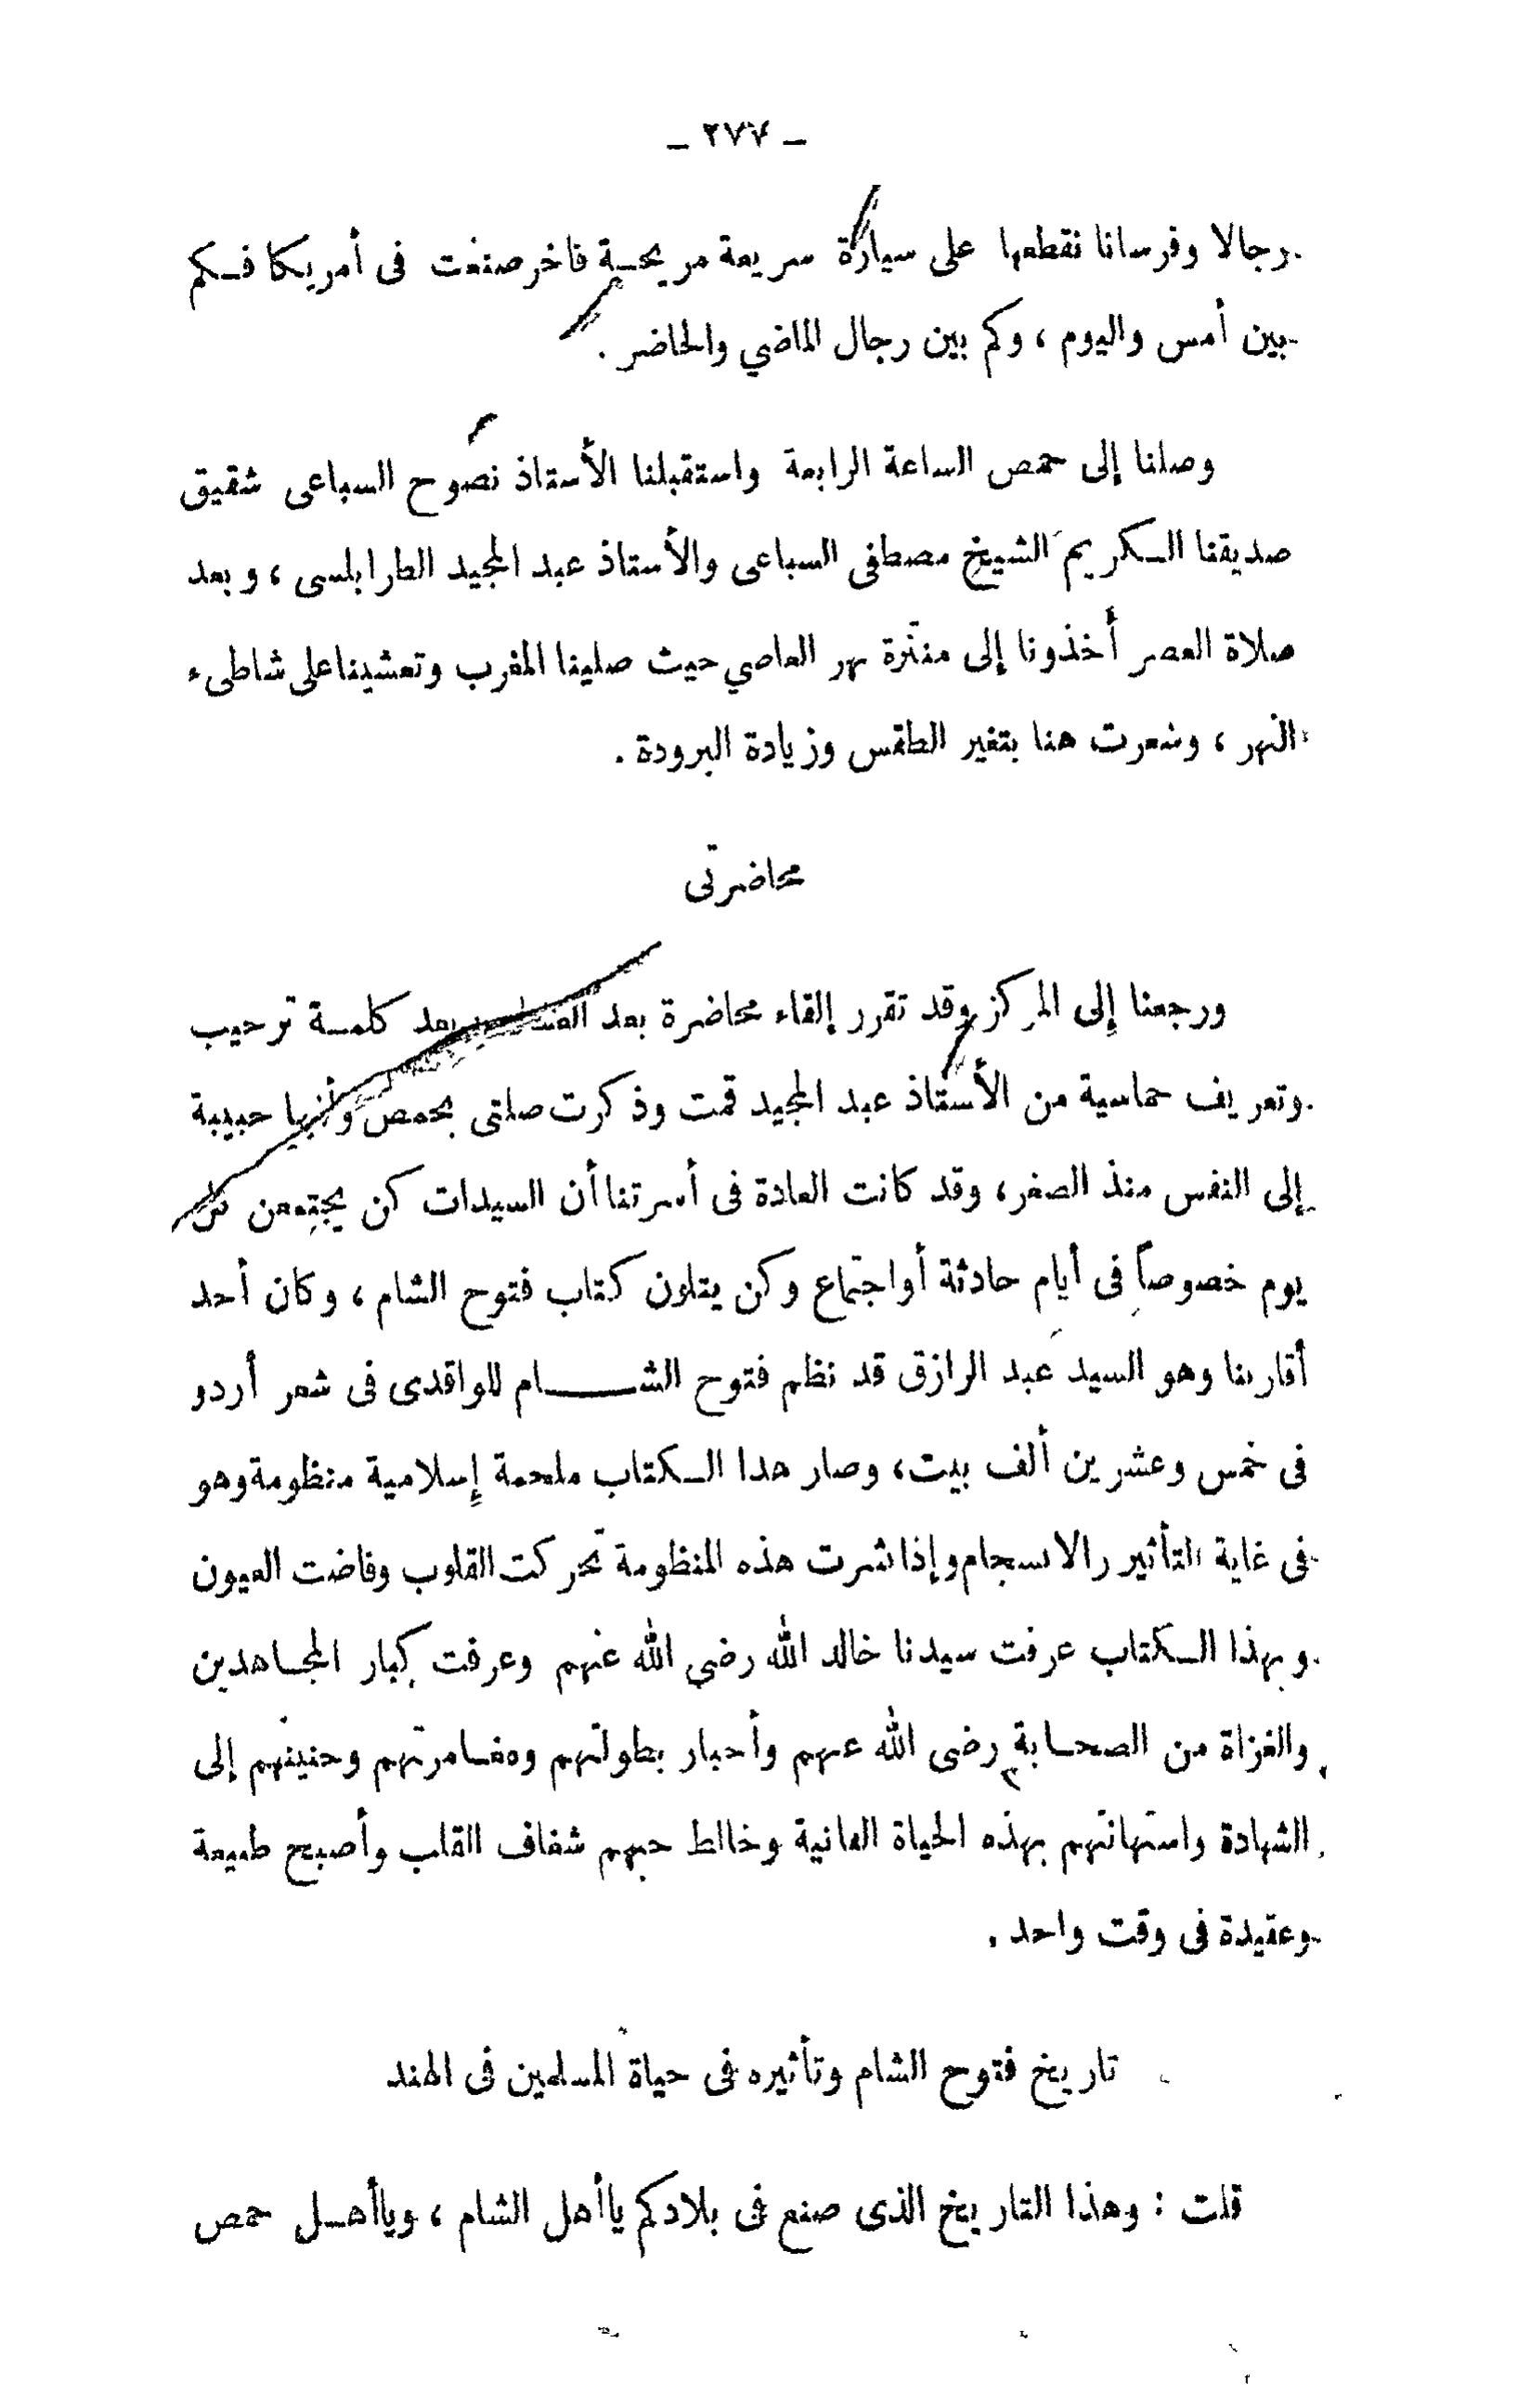 ـ ٢٧٧ ـ
رجالا وفرسانا نقطعها على سيارة سريعة مريحة فاخر صنعت فى أمريكا فكم
بين أمس واليوم ، وكم بين رجال الماضي والحاضر .
وصلنا إلى حمص الساعة الرابعة واستقبلنا الأستاذ نصوح السباعى شقيق
صديقنا الكريم الشيخ مصطفى السباعى والأستاذ عبد المجيد الطرابلسى ، وبعد
صلاة العصر أخذونا إلى منتزة نهر العاصي حيث صلينا المغرب وتعشينا على شاطىء
النهر ، وشعرت هنا بتغير الطقس وزيادة البرودة .
محاضرتى
ورجعنا إلى المركز وقد تقرر إلقاء محاضرة بعد بعد كلمة ترحيب
وتعريف حماسية من الأستاذ عبد المجيد قمت وذكرت صلتى بحمص وأنها حبيبة
إلى النفس منذ الصغر ، وقد كانت العادة فى أسرتنا أن السيدات كن يجتمعن كل
يوم خصوصاً فى أيام حادثة أو اجتماع وكن يتلون كتاب فتوح الشام ، وكان أحد
أقاربنا وهو السيد عبد الرازق قد نظم فتوح الشام للواقدى فى شعر أردو
فى خمس وعشرين ألف بيت ، وصار هدا الكتاب ملحمة إسلامية منظومة وهو
فى غاية التأثير والانسجام وإذا نشرت هذه المنظومة تحركت القلوب وفاضت العيون
وبهذا الكتاب عرفت سيدنا خالد الله رضي الله عنهم وعرفت كبار المجاهدين
والغزاة من الصحابة رضى الله عنهم وأخبار بطولتهم ومغامرتهم وحنينهم إلى
الشهادة واستهانتهم بهذه الحياة الفانية وخالط حبهم شغاف القلب وأصبح طبيعة
وعقيدة فى وقت واحد .
تاريخ فتوح الشام وتأثيره فى حياة المسلمين فى الهند
قلت : وهذا التاريخ الذى صنع فى بلادكم يا أهل الشام ، ويا أهل حمص